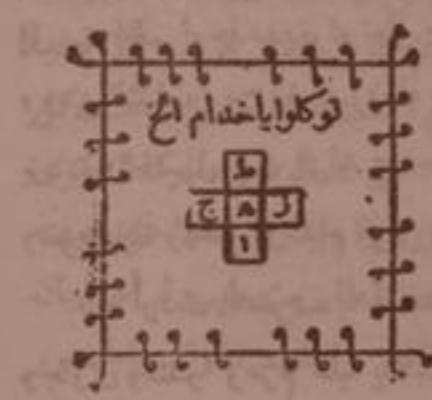 توكلوا يا خدام الخ
ط
ز ه ج
ا